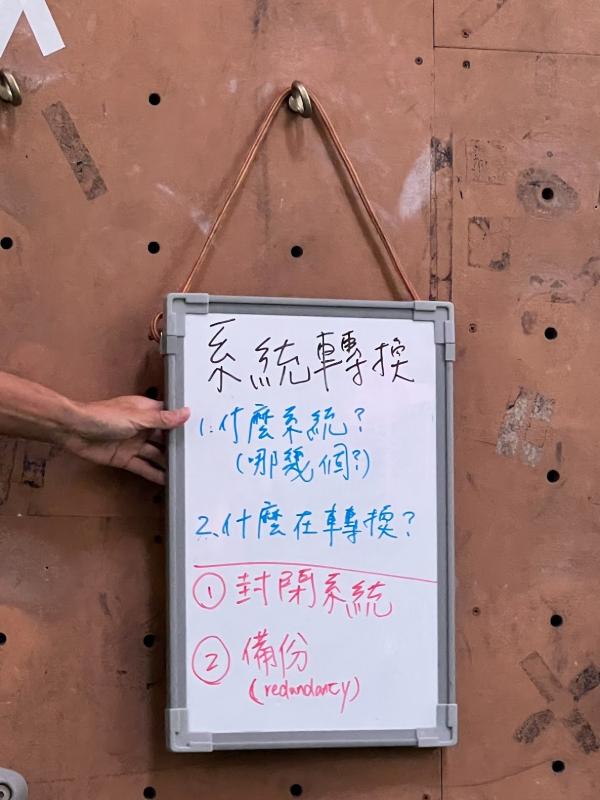 系統轉換
1. 什麼系統?
(哪幾個?)
2. 什麼在轉換?
① 封閉系統
② 備份
(redundancy)